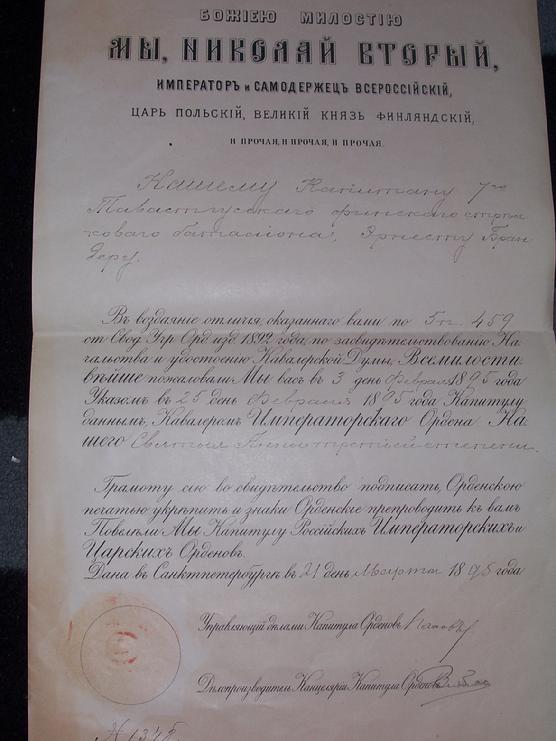 БОЖІЕЮ МИЛОСТІЮ
МЫ, НИКОЛАЙ ВТОРЫЙ,
ИМПЕРАТОРЪ и САМОДЕРЖЕЦЪ ВСЕРОССІЙСКІЙ,
ЦАРЬ ПОЛЬСКІЙ, ВЕЛИКІЙ КНЯЗЬ ФИНЛЯНДСКІЙ,
И ПРОЧАЯ, И ПРОЧАЯ, И ПРОЧАЯ.
Нашему Капитану 7го
Тавастгусскаго финскаго стрѣл
коваго баталіона, Эрнесту Бран
деру.
Въ воздаяніе отличія, оказаннаго вами по 5 п. 459
ст Свод Учр Орд изд 1892 года, по засвидѣтельствованію На-
чальства и удостоенію Кавалерской Думы, Всемилости-
вѣйше пожаловали Мы васъ въ 3 день Февраля 1895 года
Указомъ въ 25 день Февраля 1895 года Капитулу
даннымъ, Кавалеромъ Императорскаго Ордена На-
шего Святыя Анны третьей степени.
Грамоту сію во свидѣтельство подписать, Орденскою
печатью укрѣпить и знаки Орденскіе препроводить къ вамъ
Повелѣли Мы Капитулу Россійскихъ Императорскихъ и
Царскихъ Орденовъ.
Дана въ Санктпетербургѣ въ 21 день Марта 1895 года
Управляющій дѣлами Капитула Орденовъ
Дѣлопроизводитель Канцеляріи Капитула Орденовъ
№ 1348.